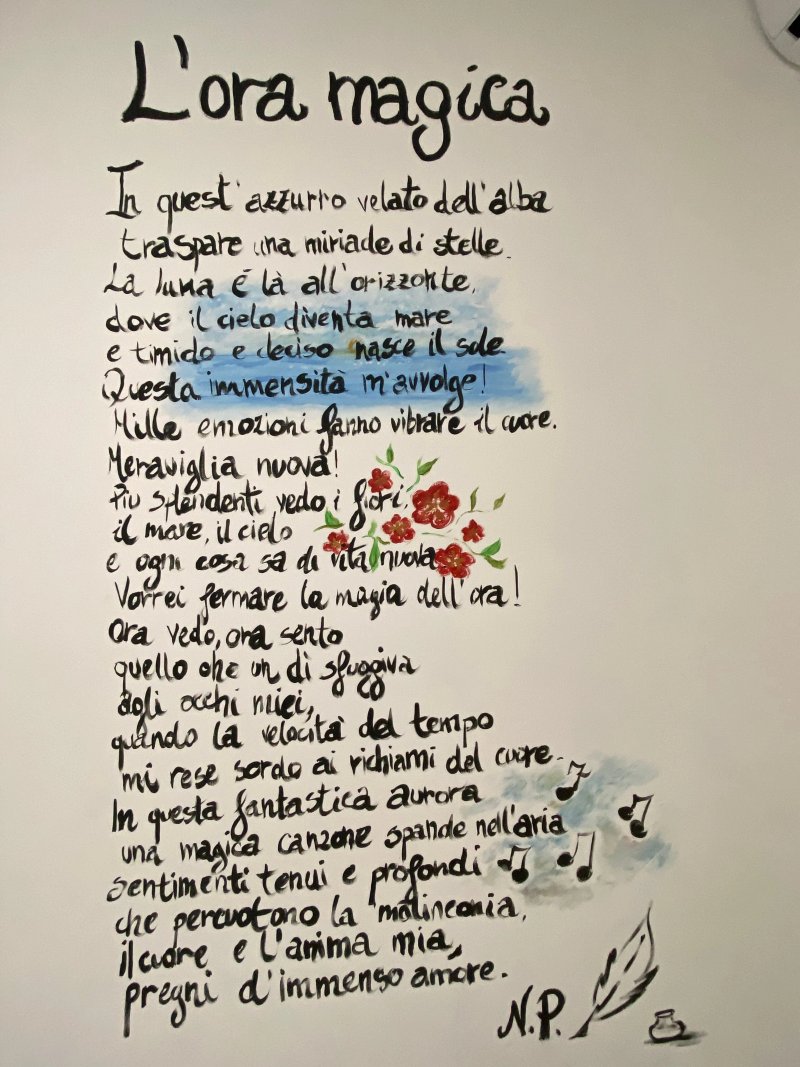 L'ora magica
In quest'azzurro velato dell'alba
traspare una miriade di stelle.
La luna è là all'orizzonte,
dove il cielo diventa mare
e timido e deciso nasce il sole.
Questa immensità m'avvolge!
Mille emozioni fanno vibrare il cuore.
Meraviglia nuova!
Più splendenti vedo i fiori,
il mare, il cielo
e ogni cosa sa di vita nuova
Vorrei fermare la magia dell'ora!
Ora vedo, ora sento
quello che un dì sfuggiva
agli occhi miei,
quando la velocità del tempo
mi rese sordo ai richiami del cuore.
In questa fantastica aurora
una magica canzone spande nell'aria
sentimenti tenui e profondi
che percuotono la malinconia,
il cuore e l'anima mia,
pregni d'immenso amore.
N.P.